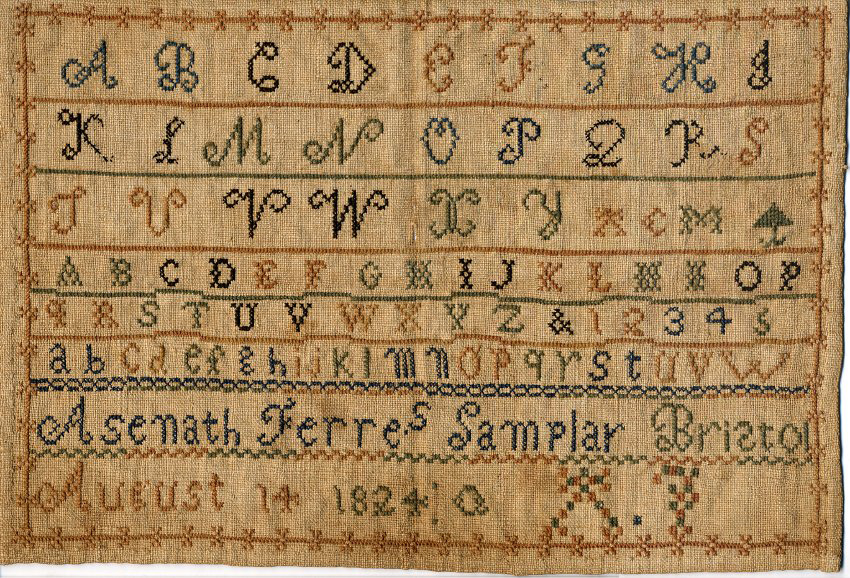 A B C D E F G H I
K L M N O P Q R S
T U V W X Y
A B C D E F G H I J K L M N O P
q R S T U V W X Y Z & 1 2 3 4 5
a b c d e f g h i j k l m n o p q r s t u v w
Asenath Ferres Samplar Bristol
August 14 1824